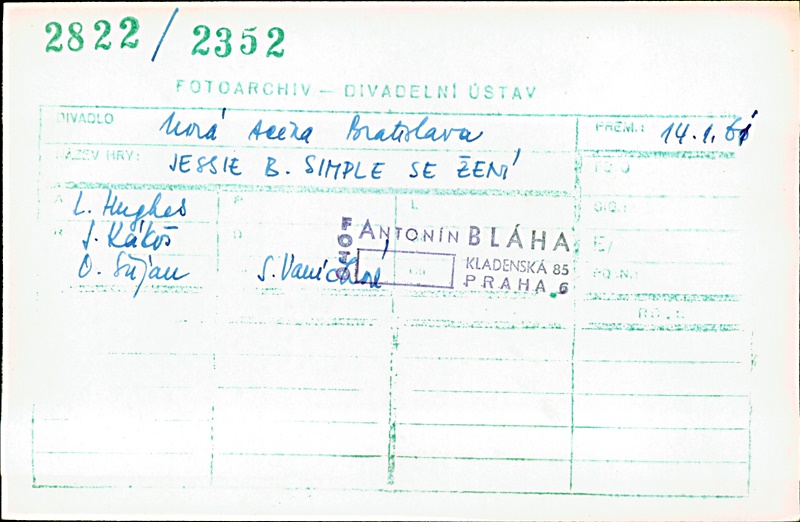 2822 / 2352
FOTOARCHIV — DIVADELNÍ ÚSTAV
DIVADLO Nová scéna Bratislava PREM.: 14.1.61
NÁZEV HRY: JESSIE B. SIMPLE SE ŽENÍ
A L. Hughes
R J. Kákoš
O. Šujan S. Vaníčková
FOTO ANTONÍN BLÁHA
KLADENSKÁ 85
PRAHA 6